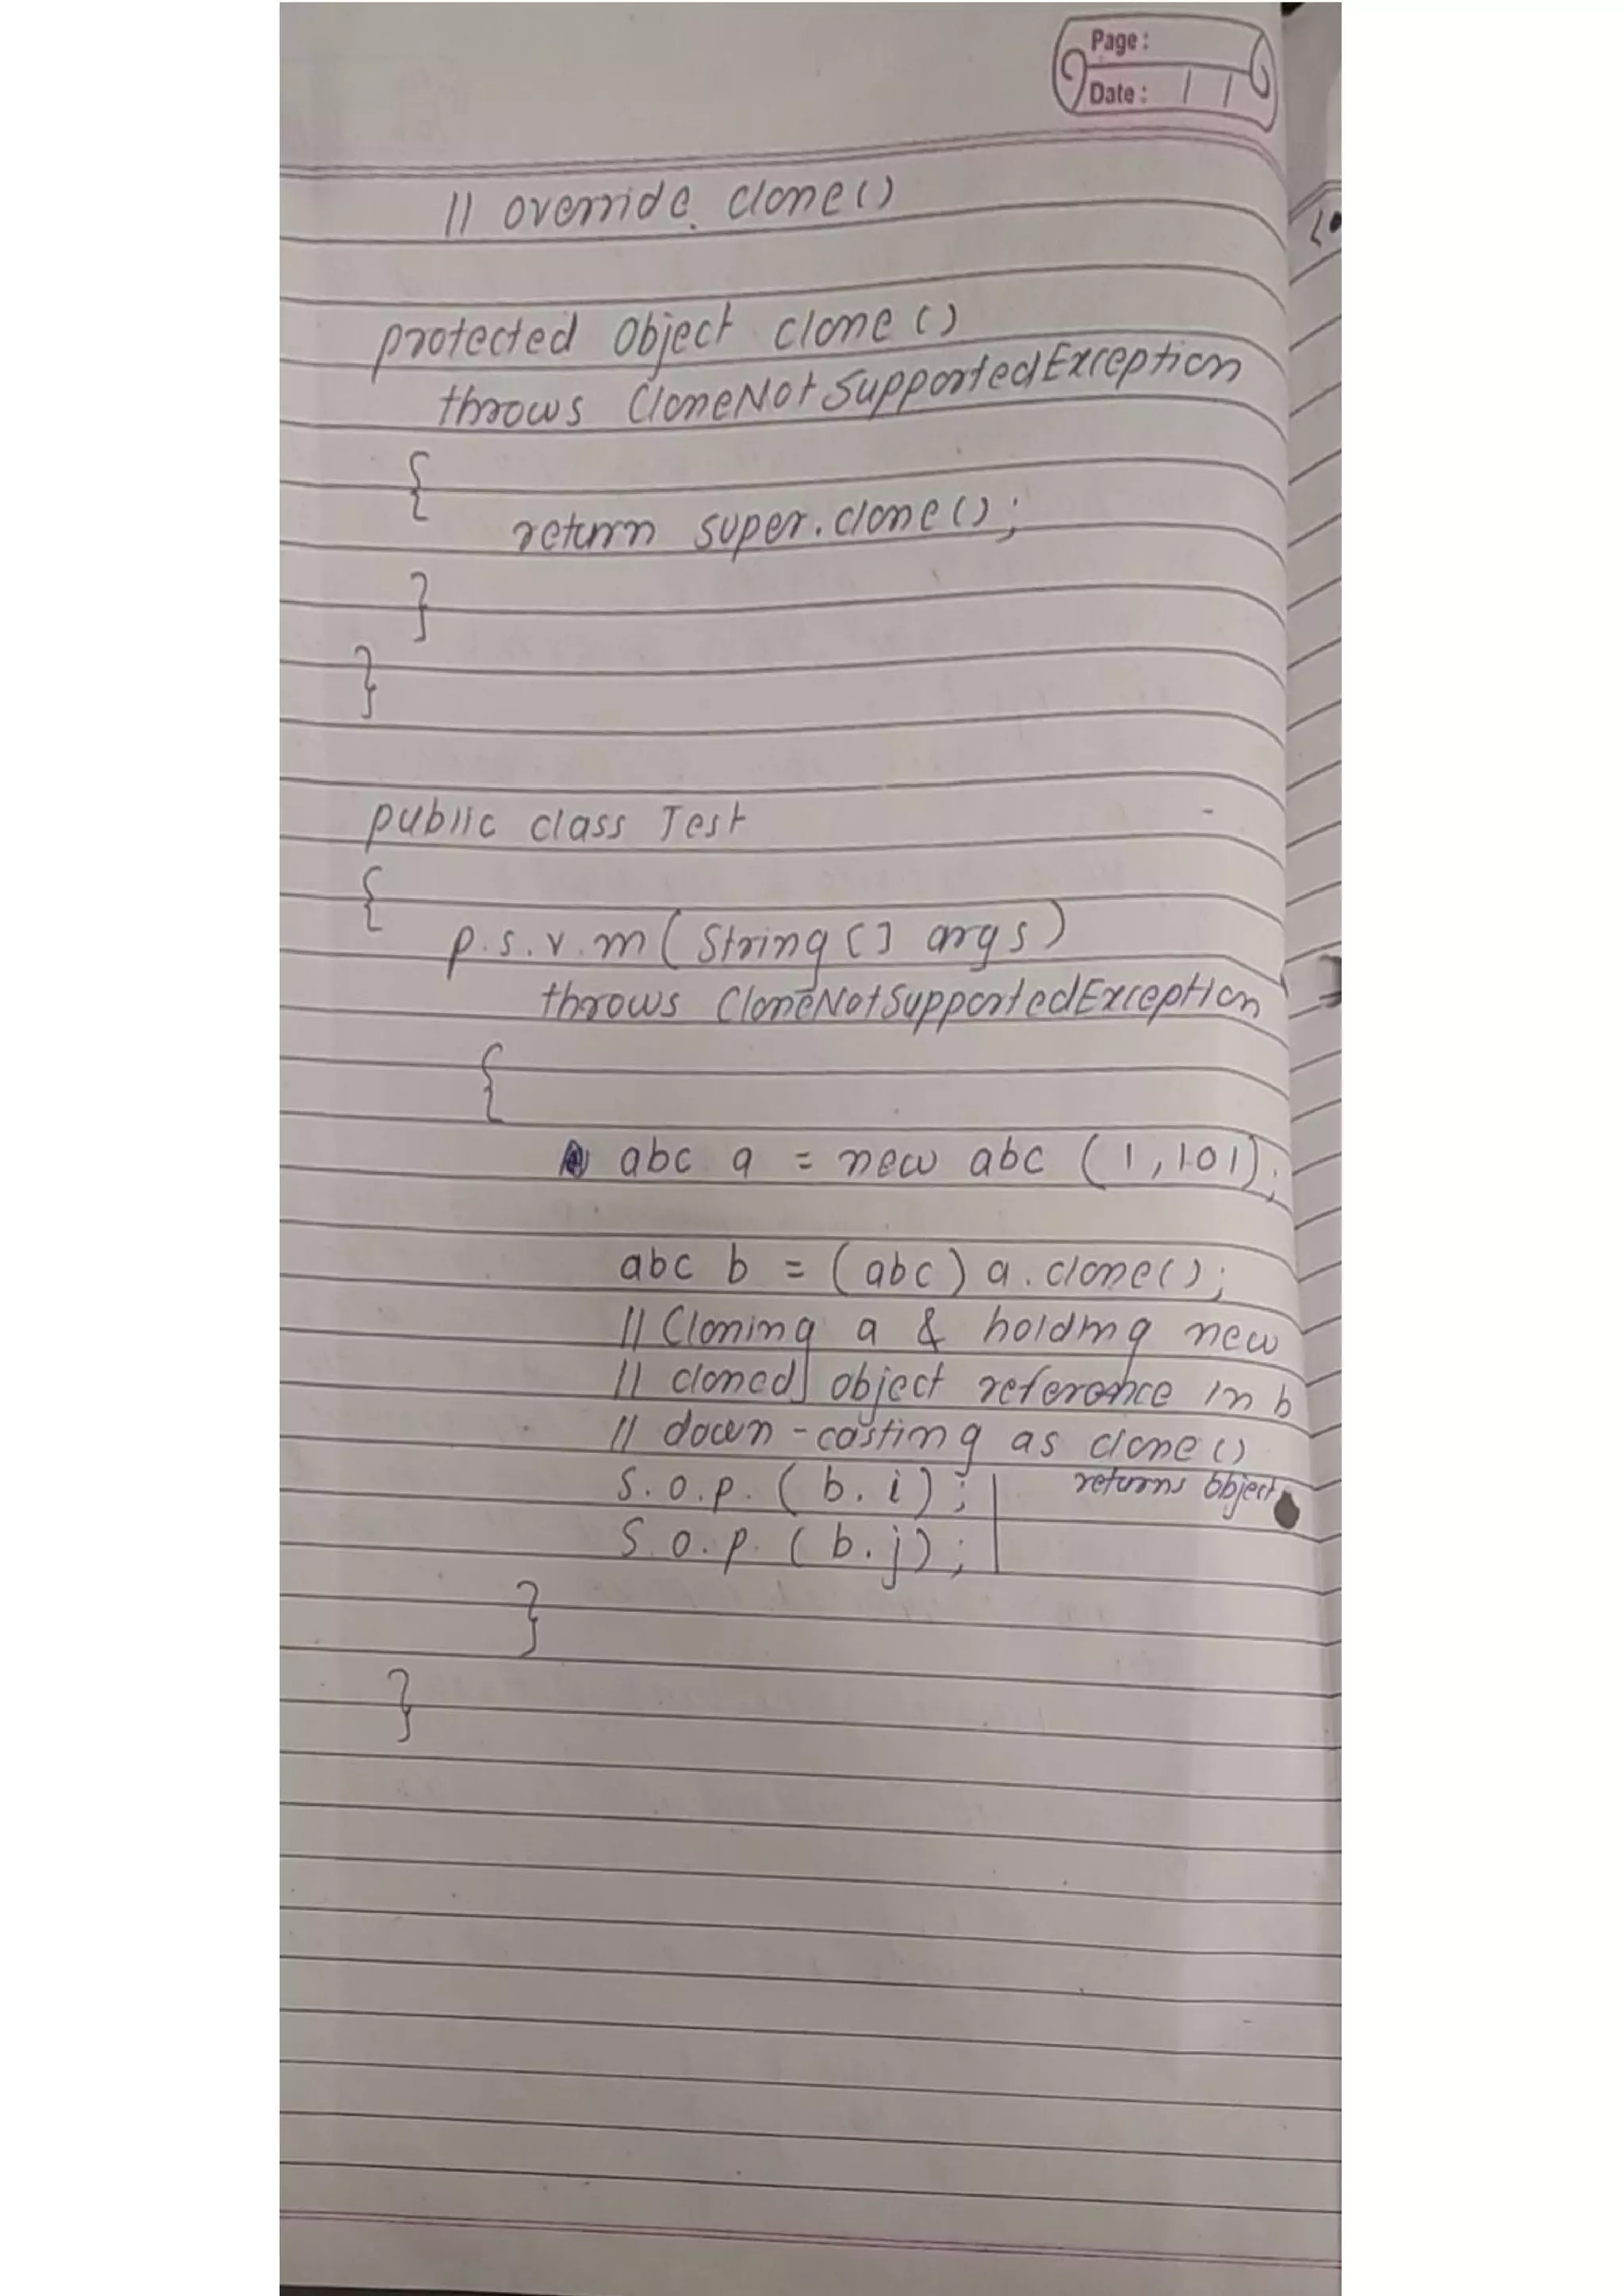 Page :
Date : / /
// override clone()
protected Object clone ()
throws CloneNotSupportedException
{
return super.clone();
}
}
public class Test
{
p.s.v.m (String [] args)
throws CloneNotSupportedException
{
abc a = new abc (1,101);
abc b = (abc) a.clone();
// Cloning a & holding new
// cloned object reference in b
// down-casting as clone()
returns object
S.o.p. (b.i);
S.o.p. (b.j);
}
}